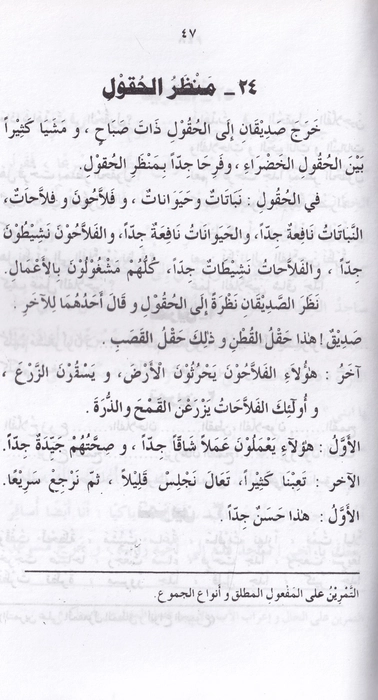 ٤٧
٢٤ ـ مَنْظَرُ الحُقوْلِ
خَرَجَ صَدِيْقَانِ إلَى الحُقُوْلِ ذَاتَ صَبَاحٍ ، وَ مَشَيَا كَثِيْراً
بَيْنَ الحُقُوْلِ الخَضْرَاءِ ، وَفَرِحَا جِدّاً بِمَنْظَرِ الحُقُوْلِ.
في الحُقُوْلِ : نَبَاتَاتٌ وَحَيَوَانَاتٌ ، وَ فَلاَّحُونَ وَ فَلاَّحَاتٌ،
النَّبَاتَاتُ نَافِعَةٌ جِدّاً، وَالحَيَوَانَاتُ نَافِعَةٌ جِدّاً، وَ الفَلاَّحُوْنَ نَشِيْطُوْنَ
جِدّاً ، وَ الفَلاَّحَاتُ نَشِيْطَاتٌ جِدّاً، كُلُّهُمْ مَشْغُوْلُوْنَ بِالأَعْمَالِ.
نَظَرَ الصَّدِيْقَانِ نَظْرَةً إلَى الحُقُوْلِ وَ قَالَ أَحَدُهُمَا لِلآخَرِ .
صَدِيْقٌ ! هٰذا حَقْلُ القُطْنِ وَ ذٰلِكَ حَقْلُ القَصَبِ .
آخَرُ : هٰؤُلاَءِ الفَلاَّحُوْنَ يَحْرُثُوْنَ الأَرْضَ، وَ يَسْقُوْنَ الزَّرْعَ ،
وَ أُولٰئِكَ الفَلاَّحَاتُ يَزْرَعْنَ القَمْحَ وَالذُّرَةَ .
الأَوَّلُ : هٰؤُلاَءِ يَعْمَلُوْنَ عَمَلاً شَاقاً جِدّاً ، وَ صِحَّتُهُمْ جَيِّدَةٌ جِدّاً.
الآخر : تَعِبْنَا كَثِيْراً، تَعَالَ نَجْلِسْ قَلِيْلاً ، ثُمَّ نَرْجِعْ سَرِيْعًا.
الأَوَّلُ : هٰذا حَسَنٌ جِدّاً .
التَّمْرِيْنُ على المَفعولِ المطلق و أنواعِ الجموع.